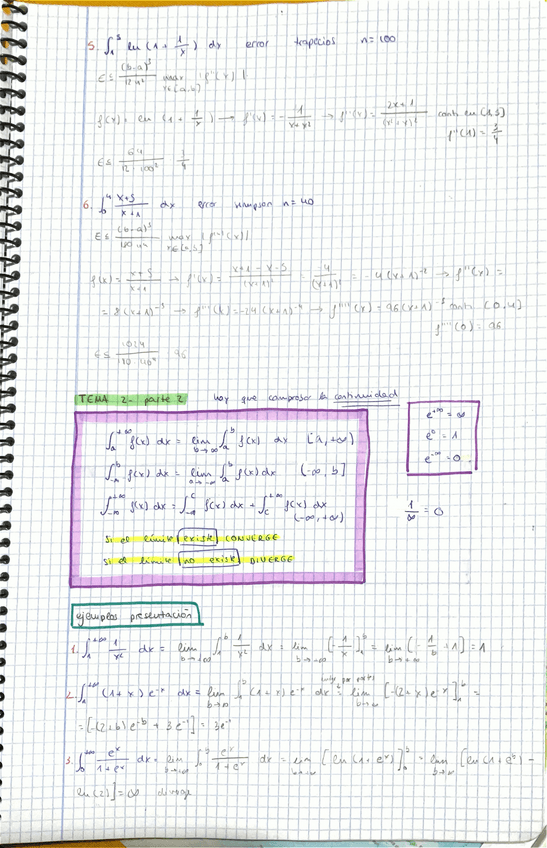 5. ∫₁⁵ ln (1 + 1/x) dx error trapecios n=100
E ≤ (b-a)³/12n² max x∈[a,b] |f''(x)|
f(x) = ln (1 + 1/x) → f'(x) = - 1/(x+x²) → f''(x) = (2x+1)/(x²+x)² conti. en [1,5]
f''(1) = 3/4
E ≤ 64/(12·100²) 3/4
6. ∫₀⁴ (x+5)/(x+1) dx error simpson n=40
E ≤ (b-a)⁵/180n⁴ max x∈[a,b] |f''''(x)|
f(x) = (x+5)/(x+1) → f'(x) = (x+1-x-5)/(x+1)² = -4/(x+1)² = -4(x+1)⁻² → f''(x) =
= 8(x+1)⁻³ → f'''(x) = -24(x+1)⁻⁴ → f''''(x) = 96(x+1)⁻⁵ conti. [0,4]
f''''(0) = 96
E ≤ 1024/(180·40⁴) 96
TEMA 2 - parte 2 hay que comprobar la continuidad
∫ₐ^+∞ f(x) dx = lim b→∞ ∫ₐᵇ f(x) dx [1,+∞)
∫₋∞ᵇ f(x) dx = lim a→-∞ ∫ₐᵇ f(x) dx (-∞, b]
∫₋∞^+∞ f(x) dx = ∫₋∞ᶜ f(x) dx + ∫c^+∞ f(x) dx
(-∞,+∞)
Si el límite existe CONVERGE
Si el límite no existe DIVERGE
e^+∞ = ∞
e⁰ = 1
e^-∞ = 0
1/∞ = 0
ejemplos presentación
1. ∫₁^+∞ 1/x² dx = lim b→+∞ ∫₁ᵇ 1/x² dx = lim b→+∞ [-1/x]₁ᵇ = lim b→+∞ (-1/b + 1) = 1
2. ∫₁^+∞ (1+x) e⁻ˣ dx = lim b→∞ ∫₁ᵇ (1+x) e⁻ˣ dx = integ por partes lim b→∞ [-(2+x)e⁻ˣ]₁ᵇ =
= [-(2+b) e⁻ᵇ + 3e⁻¹] = 3e⁻¹
3. ∫₀^+∞ eˣ/(1+eˣ) dx = lim b→∞ ∫₀ᵇ eˣ/(1+eˣ) dx = lim b→∞ [ln (1+eˣ)]₀ᵇ = lim b→∞ [ln (1+eᵇ) -
ln(2)] = ∞ diverge